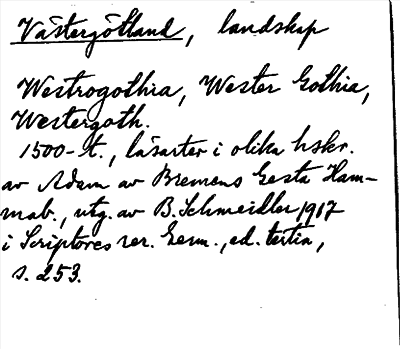 Västergötland, landskap
Westrogothia, Wester Gothia,
Westergoth.
1500-t., läsarter i olika hskr.
av Adam av Bremens Gesta Ham-
mab., utg. av B. Schmeidler 1917
i Scriptores rer. Germ., ed. tertia,
s. 253.